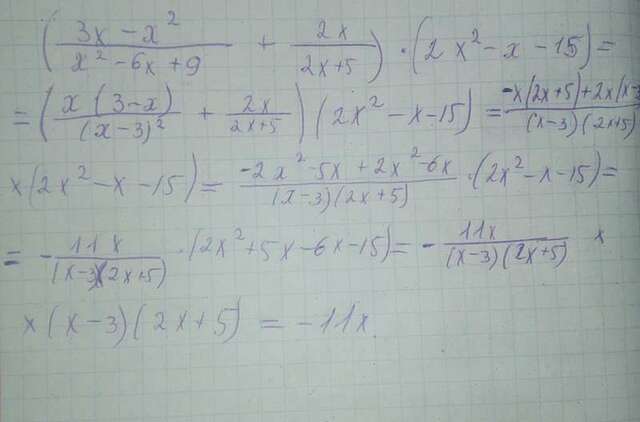 (3x - x²)/(x² - 6x + 9) + 2x/(2x+5)) · (2x² - x - 15) =
= (x(3-x)/(x-3)² + 2x/(2x+5)) (2x² - x - 15) = (-x(2x+5) + 2x(x-3)/(x-3)(2x+5)
x (2x² - x - 15) = (-2x² - 5x + 2x² - 6x)/(x-3)(2x+5) · (2x² - x - 15) =
= - 11x/(x-3)(2x+5) · (2x² + 5x - 6x - 15) = - 11x/(x-3)(2x+5) x
x (x-3)(2x+5) = -11x